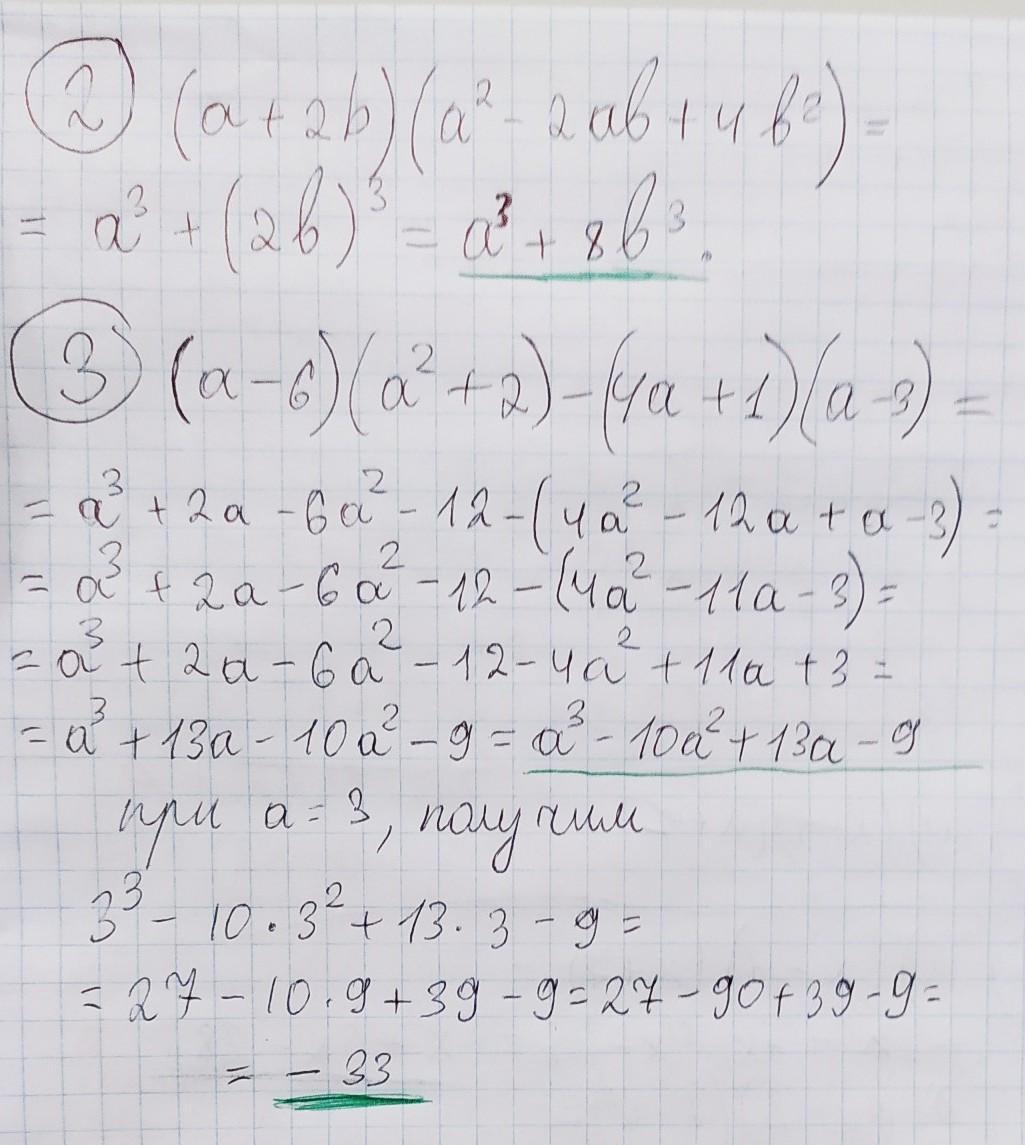 2 (a + 2b)(a² - 2ab + 4b²) =
= a³ + (2b)³ = a³ + 8b³.
3 (a - 6)(a² + 2) - (4a + 1)(a - 3) =
= a³ + 2a - 6a² - 12 - (4a² - 12a + a - 3) =
= a³ + 2a - 6a² - 12 - (4a² - 11a - 3) =
= a³ + 2a - 6a² - 12 - 4a² + 11a + 3 =
= a³ + 13a - 10a² - 9 = a³ - 10a² + 13a - 9
при a = 3, получим
3³ - 10 · 3² + 13 · 3 - 9 =
= 27 - 10 · 9 + 39 - 9 = 27 - 90 + 39 - 9 =
= - 33